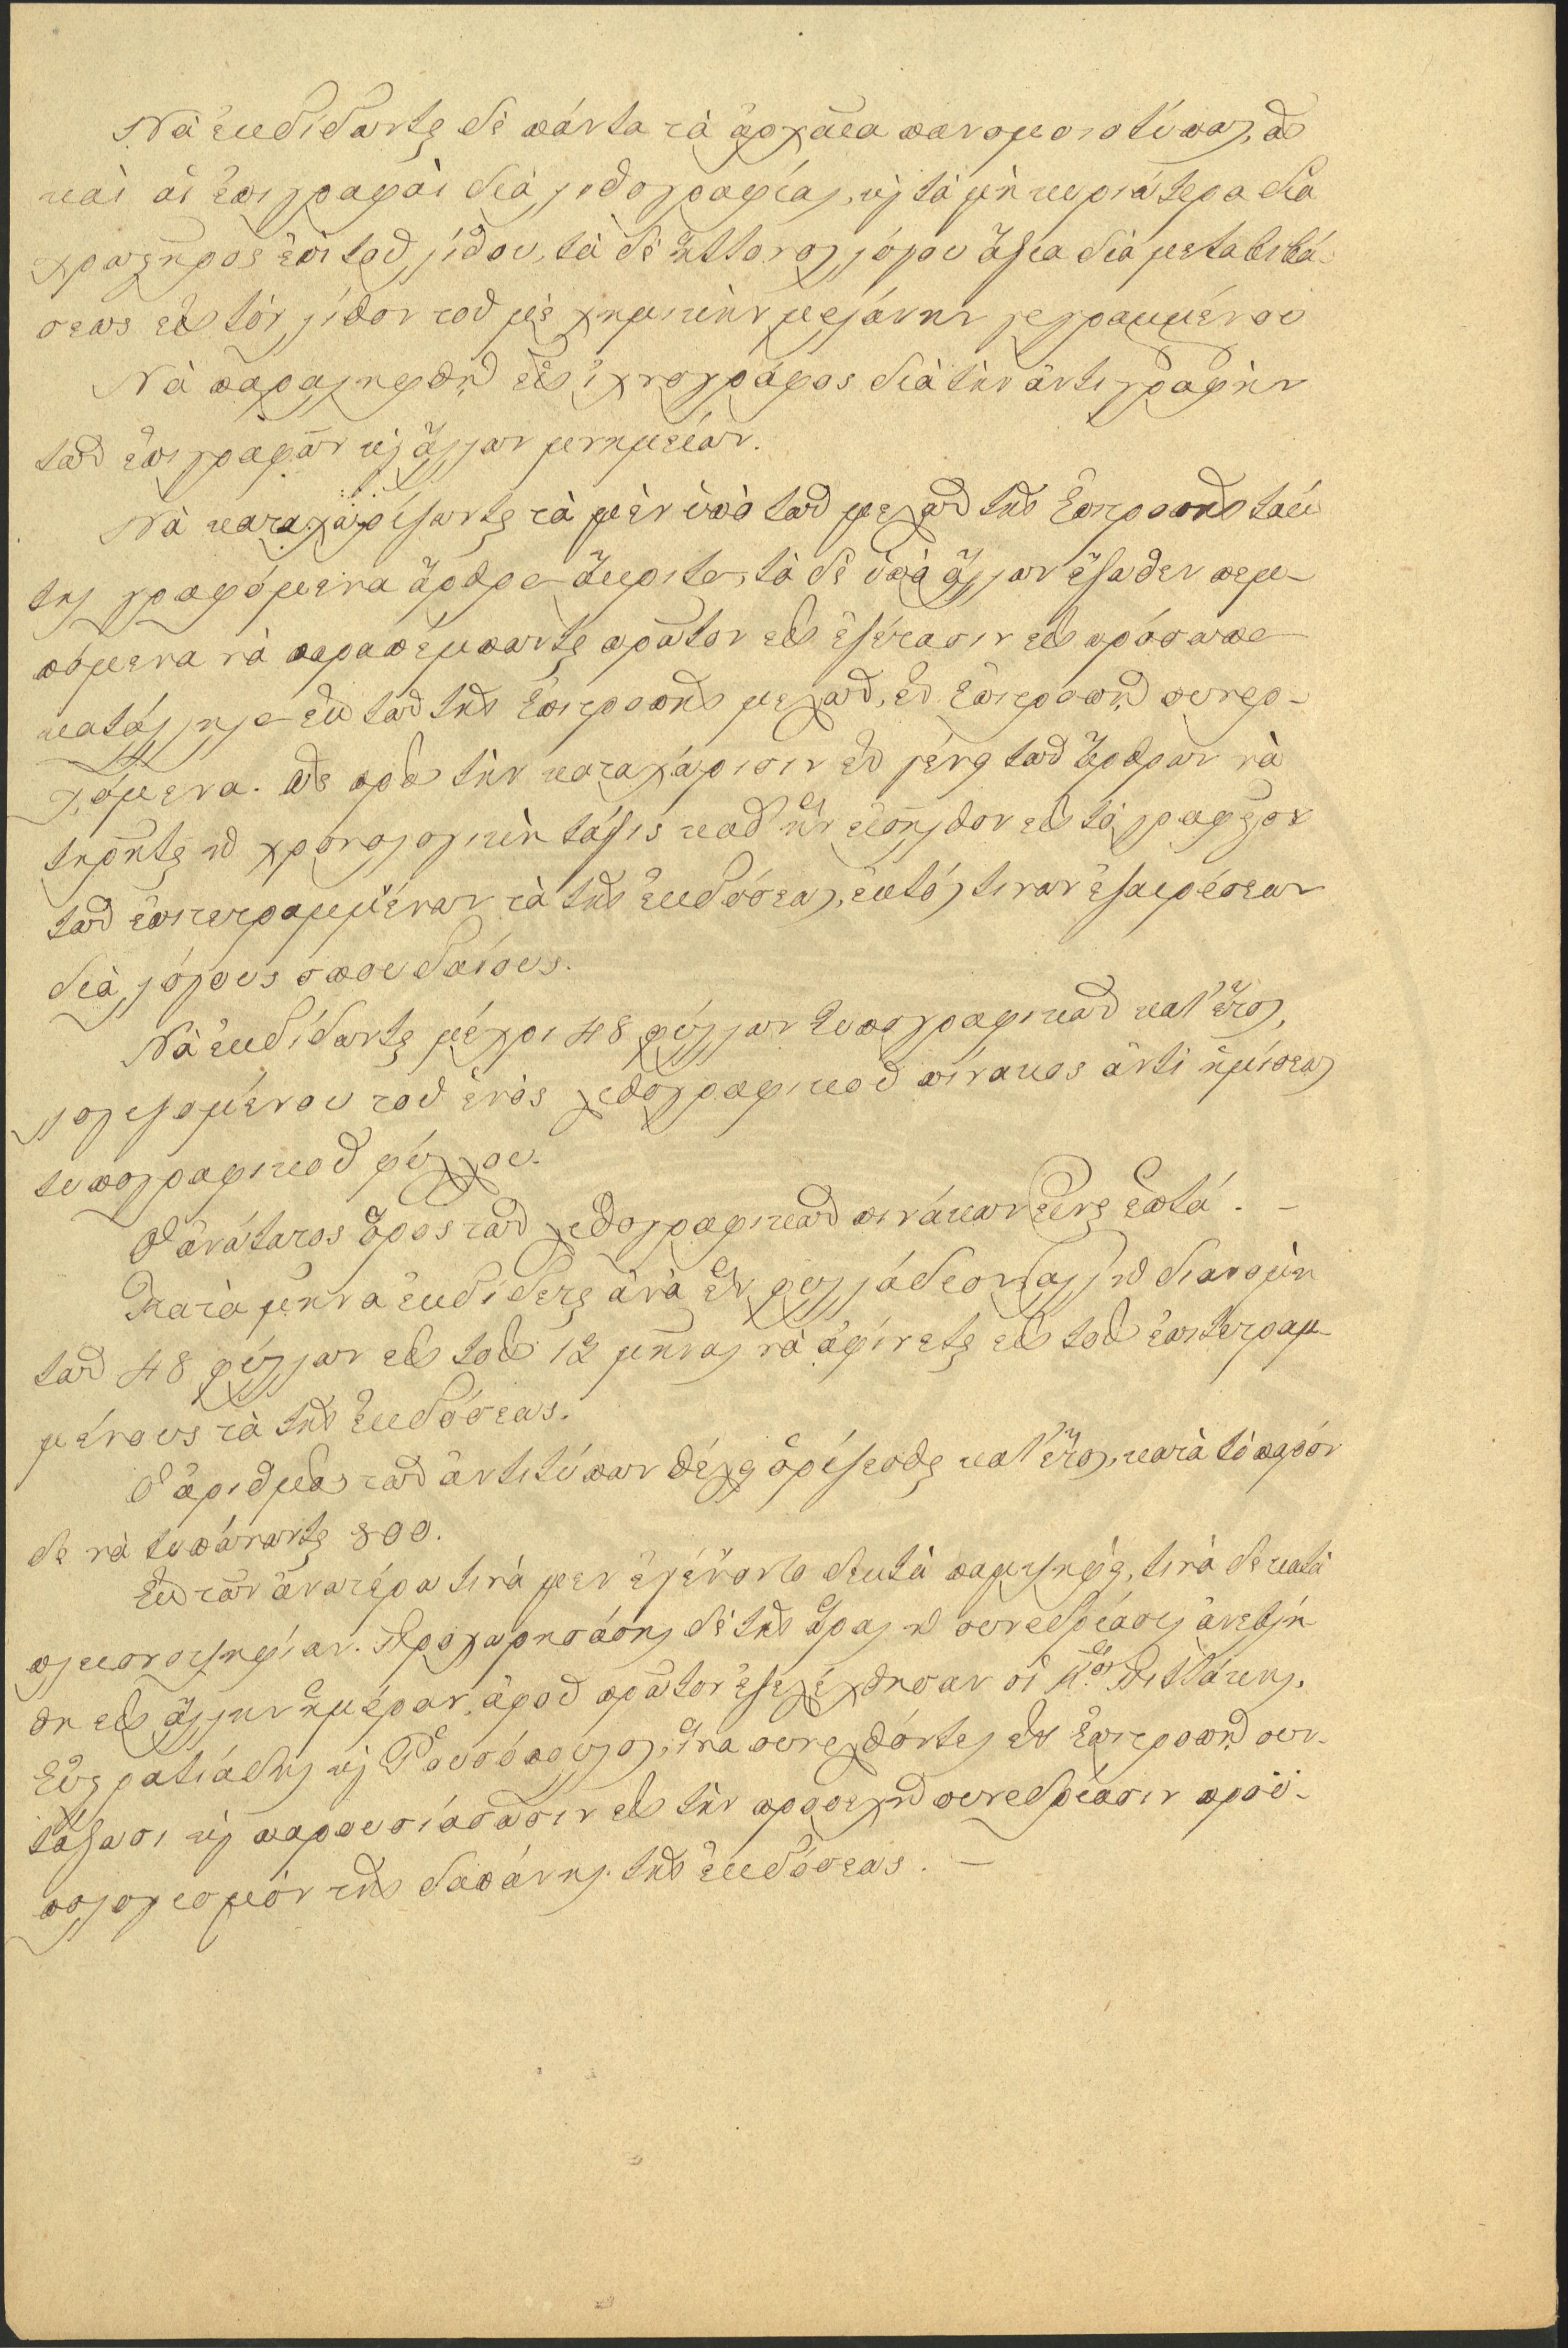 Νὰ ἐκδίδωνται δὲ πάντα τὰ ἀρχαῖα πανομοιοτύπως, ὡς
καὶ αἱ ἐπιγραφαὶ διὰ λιθογραφίας, καὶ τὰ μὲν κυριώτερα διὰ
χρωστῆρος ἐπὶ τοῦ λίθου, τὰ δὲ ἥττονος λόγου ἄξια διὰ μεταβιβά-
σεως εἰς τὸν λίθον τοῦ μὲ χημικὴν μελάνην γεγραμμένου
Νὰ παραληφθῇ εἷς ἰχνογράφος διὰ τὴν ἀντιγραφὴν
τῶν ἐπιγραφῶν καὶ ἄλλων μνημείων.
Νὰ καταχωρίζωνται τὰ μὲν ὑπὸ τῶν μελῶν τῆς Ἐπιτροπῆς ταύ
της γραφόμενα ἄρθρα ἄκριτα, τὰ δὲ ὑπὸ ἄλλων ἔξωθεν πεμ-
πόμενα νὰ παραπέμπωνται πρῶτον εἰς ἐξέτασιν εἰς πρόσωπα
κατάλληλα ἐκ τῶν τῆς Ἐπιτροπῆς μελῶν, ἐν Ἐπιτροπῇ συνερ-
χόμενα. Ὡς πρὸς τὴν καταχώρισιν ἐν γένει τῶν ἄρθρων νὰ
τηρῆται ἡ χρονολογικὴ τάξις καθ' ἣν εἰσῆλθον εἰς τὸ γραφεῖον
τῶν ἐπιτετραμμένων τὰ τῆς ἐκδόσεως, ἐκτός τινων ἐξαιρέσεων
διὰ λόγους σπουδαίους.
Νὰ ἐκδίδωνται μέχρι 48 φύλλων τυπογραφικῶν κατ' ἔτος,
λογιζομένου τοῦ ἑνὸς λιθογραφικοῦ πίνακος ἀντὶ ἡμίσεως
τυπογραφικοῦ φύλλου.
Ὁ ἀνώτατος ὅρος τῶν λιθογραφικῶν πινάκων εἶναι ἑπτά. –
Κατὰ μῆνα ἐκδίδεται ἀνὰ ἓν φυλλάδιον ἀλλ' ἡ διανομὴ
τῶν 48 φύλλων εἰς τοὺς 12 μῆνας νὰ ἀφίνεται εἰς τοὺς ἐπιτετραμ-
μένους τὰ τῆς ἐκδόσεως.
Ὁ ἀριθμὸς τῶν ἀντιτύπων θέλει ὁρίζεσθαι κατ' ἔτος, κατὰ τὸ παρὸν
δὲ νὰ τυπώνωνται 800.
Ἐκ τῶν ἀνωτέρω τινὰ μὲν ἐγένοντο δεκτὰ παμψηφεὶ, τινὰ δὲ κατὰ
πλειονοψηφίαν. Προχωρησάσης δὲ τῆς ὥρας ἡ συνεδρίασις ἀνεβλή
θη εἰς ἄλλην ἡμέραν, ἀφοῦ πρῶτον ἐξελέχθησαν οἱ Κ.οι Πιττάκης,
Εὐστρατιάδης καὶ Ῥουσόπουλος, ἵνα συνελθόντες ἐν Ἐπιτροπῇ συν-
τάξωσι καὶ παρουσιάσωσιν εἰς τὴν προσεχῆ συνεδρίασιν προϋ-
πολογισμὸν τῆς δαπάνης τῆς ἐκδόσεως. –